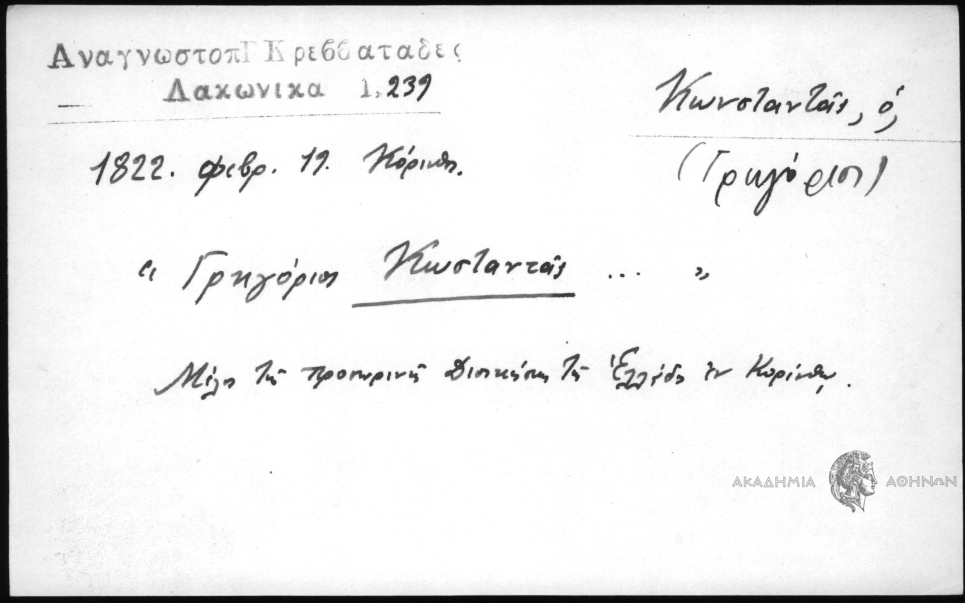 ΑναγνωστοπΓ Κρεββαταδες
Λακωνικα 1,239
Κωνσταντᾶς, ὁ,
(Γρηγόριος)
1822. φεβρ. 19. Κόρινθος.
“ Γρηγόριος Κωσταντᾶς ... ”
Μέλος τῆς προσωρινῆς Διοικήσεως τῆς Ἑλλάδος ἐν Κορίνθῳ.
ΑΚΑΔΗΜΙΑ ΑΘΗΝΩΝ